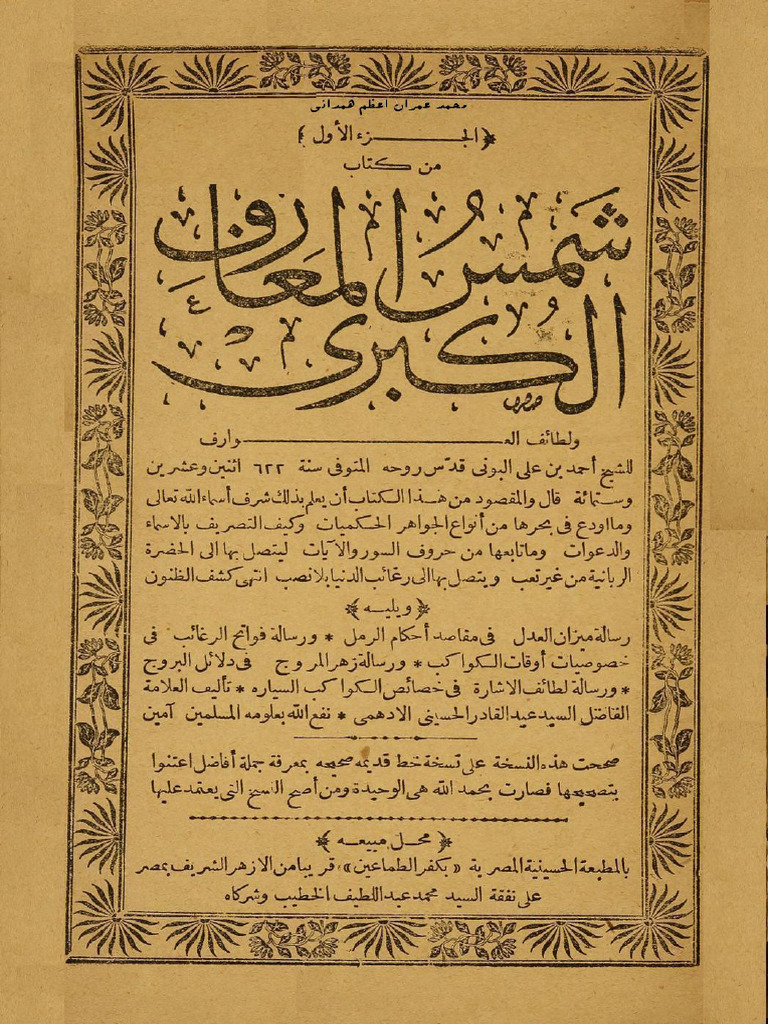 محمد عمران اعظم همدانی
﴿ الجـــزء الأول ﴾
من كتاب
شمس المعارف
الكبرى
ولطائف العـــــــوارف
للشيخ أحمد بن على البونى قدّس روحه المتوفى سنة ٦٢٢ اثنين وعشرين
وستمائة قال والمقصود من هذا الكتاب أن يعلم بذلك شرف أسماء الله تعالى
وما اودع فى بحرها من أنواع الجواهر الحكميات وكيف التصريف بالاسماء
والدعوات وما تابعها من حروف السور والآيات ليتصل بها الى الحضرة
الربانية من غير تعب ويتصل بها الى رغائب الدنيا بلا نصب انتهى كشف الظنون
﴿ ويليـه ﴾
رسالة ميزان العدل فى مقاصد أحكام الرمل * ورسالة فواتح الرغائب فى
خصوصيات أوقات الكواكب * ورسالة زهر المروج فى دلائل البروج
* ورسالة لطائف الاشارة فى خصائص الكواكب السياره * تأليف العلامة
الفاضل السيد عبد القادر الحسينى الادهمى * نفع الله بعلومه المسلمين آمين
صححت هذه النسخة على نسخة خط قديمه صحيحه بمعرفة جملة أفاضل اعتنوا
بتصحيحها فصارت بحمد الله هى الوحيدة ومن أصح النسخ التى يعتمد عليها
﴿ محـل مبيعه ﴾
بالمطبعة الحسينية المصرية «بكفر الطماعين»، قريبا من الازهر الشريف بمصر
على نفقة السيد محمد عبد اللطيف الخطيب وشركاه